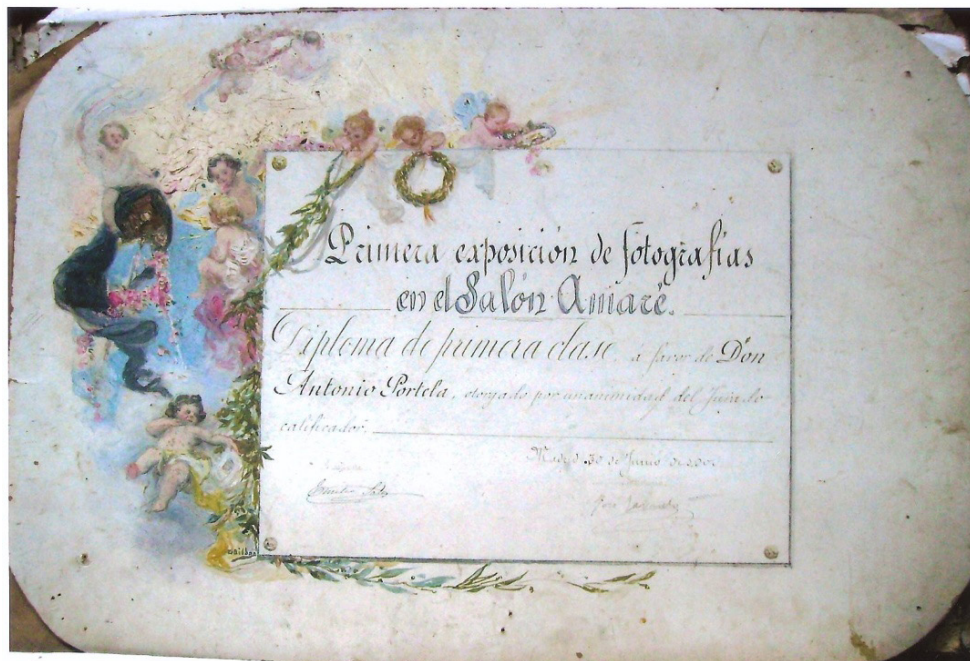 Primera exposición de fotografías
en el Salón Amaré.
Diploma de primera clase a favor de Don
Antonio Portela, otorgado por unanimidad del Jurado
calificador.
30 de Junio de